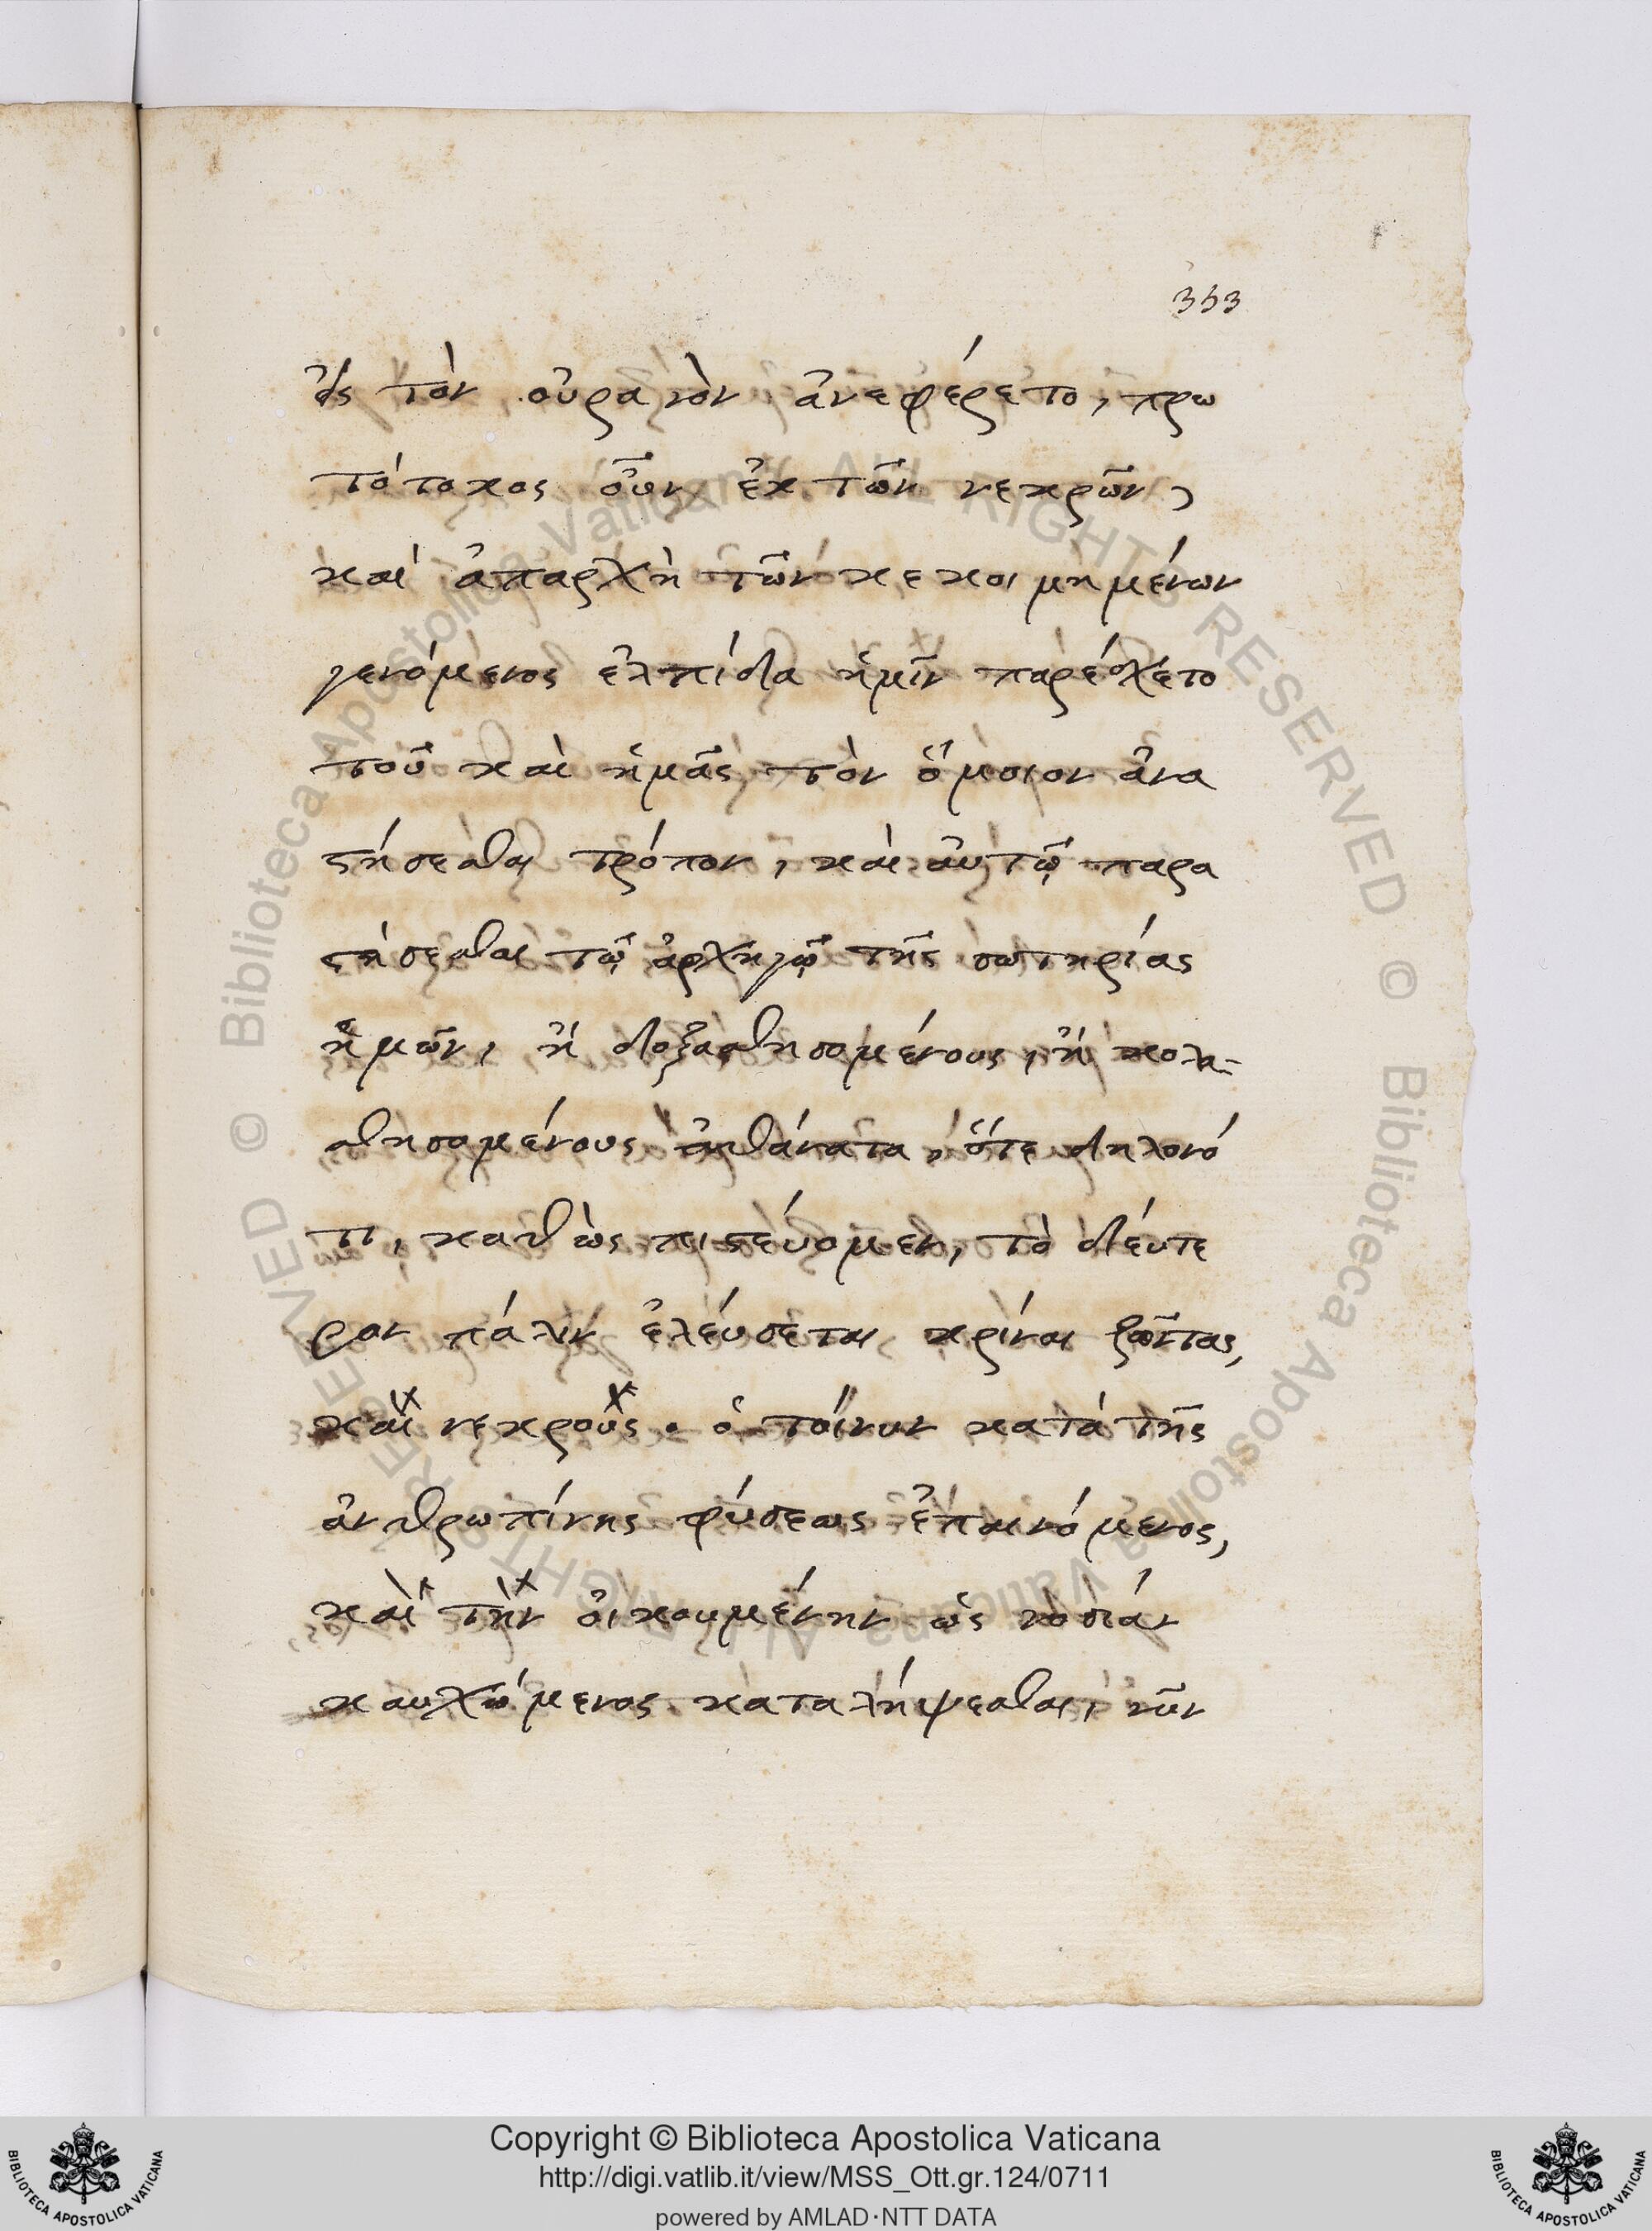 353
εἰς τὸν οὐρανὸν ἀνεφέρετο, πρω
τότοκος οὖν ἐκ τῶν νεκρῶν,
καὶ ἀπαρχὴ τῶν κεκοιμημένων
γενόμενος ἐλπίδα ἡμῖν παρέσχετο
τοῦ καὶ ἡμᾶς τὸν ὅμοιον ἀνα
στήσεσθαι τρόπον, καὶ αὐτῷ παρα
στήσεσθαι τῷ ἀρχηγῷ τῆς σωτηρίας
ἡμῶν, ἢ δοξασθησομένους, ἢ κολα-
σθησομένους ἀθάνατα, ὅτε δηλονό
τι, καθὼς πιστεύομεν, τὸ δεύτε
ρον πάλιν ἐλεύσεται κρίναι ζῶντας,
καὶ νεκρούς. ὁ τοίνυν κατὰ τῆς
ἀνθρωπίνης φύσεως ἐπαινόμενος,
καὶ τὴν οἰκουμένην ὡς νοσιάν
καυχώμενος καταλήψεσθαι, νῦν
Biblioteca Apostolica Vaticana ALL RIGHTS RESERVED ©
Copyright © Biblioteca Apostolica Vaticana
http://digi.vatlib.it/view/MSS_Ott.gr.124/0711
powered by AMLAD·NTT DATA
BIBLIOTECA APOSTOLICA VATICANA
BIBLIOTECA APOSTOLICA VATICANA